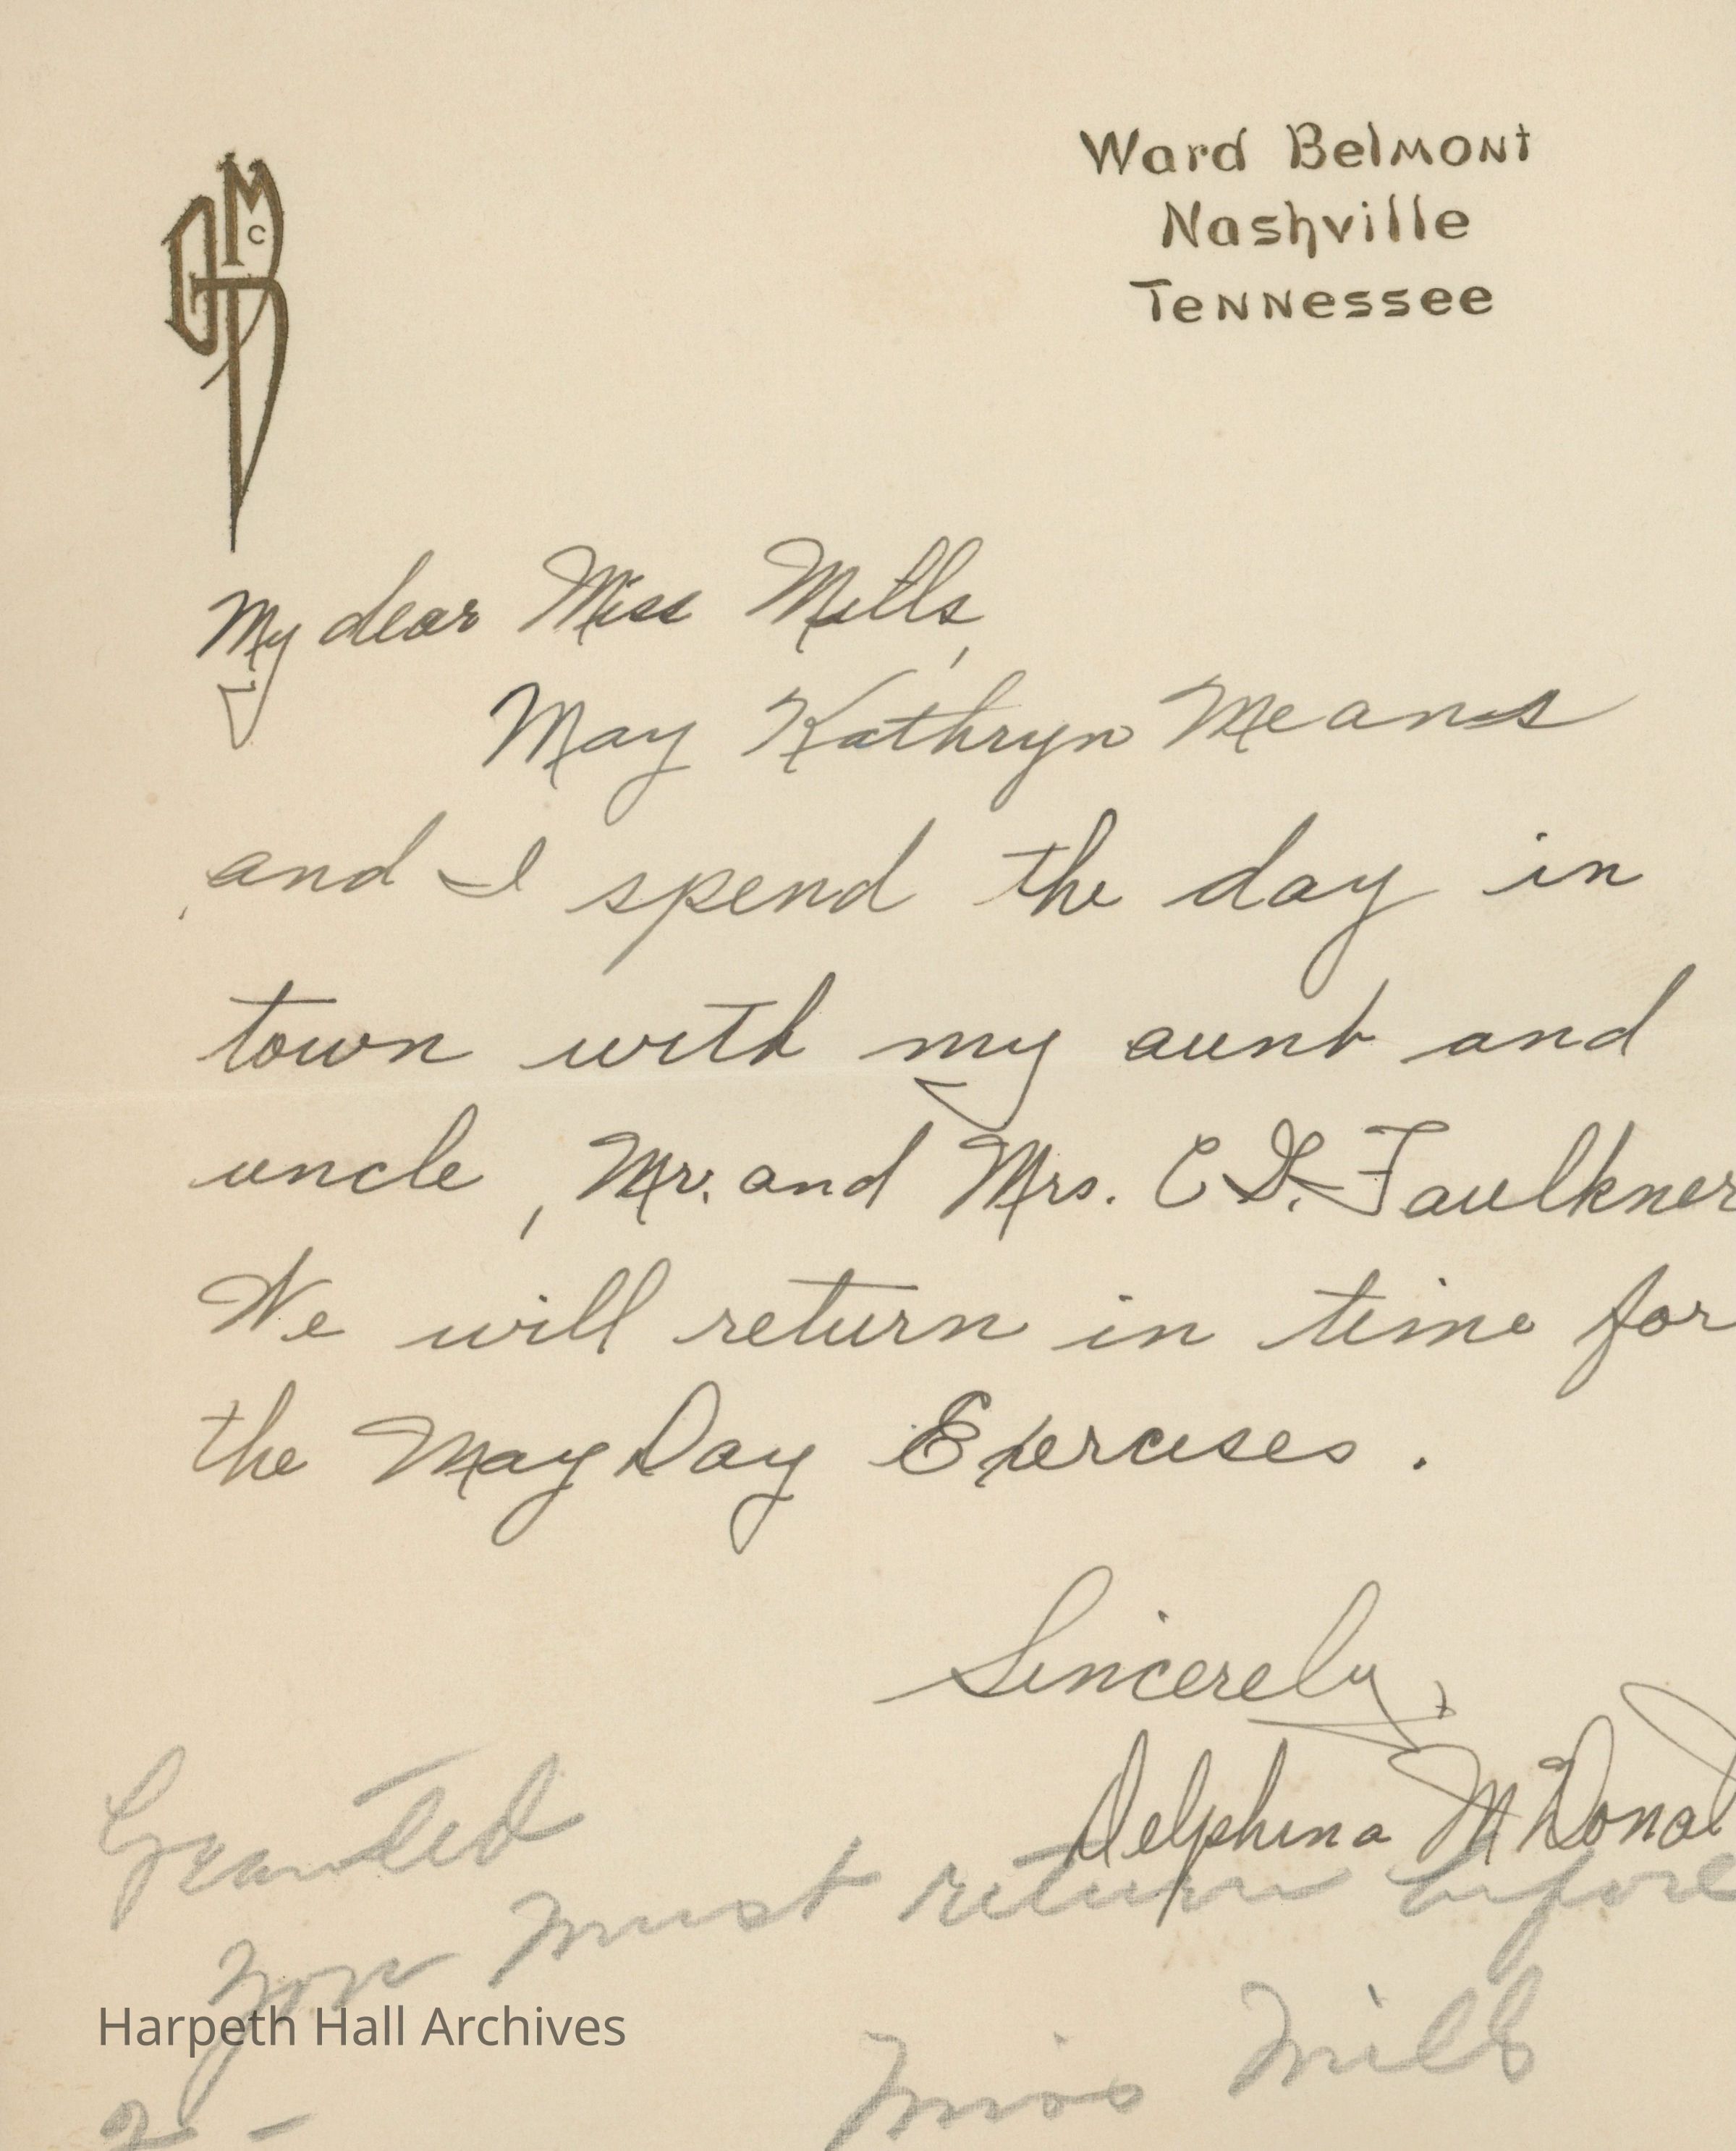 Ward Belmont
Nashville
Tennessee
My dear Miss Mills,
May Kathryn Means
and I spend the day in
town with my aunt and
uncle, Mr. and Mrs. C.D. Faulkner
We will return in time for
the May Day Exercises.
Sincerely,
Delphina McDonal
Granted
You must return before
2-
Miss Mills
Harpeth Hall Archives